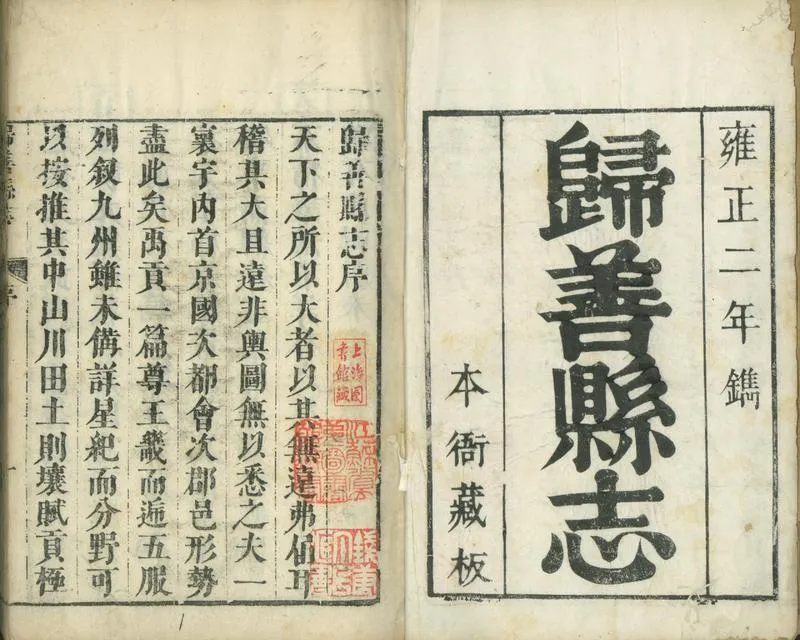 雍正二年鐫
歸善縣志
本衙藏板
歸善縣志序
天下之所以大者以其無遠弗佰耳
稽其大且遠非輿圖無以悉之夫一
寰宇內首京國次都會次郡邑形勢
盡此矣禹貢一篇尊王畿而遍五服
列叙九州雖未備詳星紀而分野可
以按推其中山川田土則壤賦貢極
歸善縣志
序
上海圖
書館藏